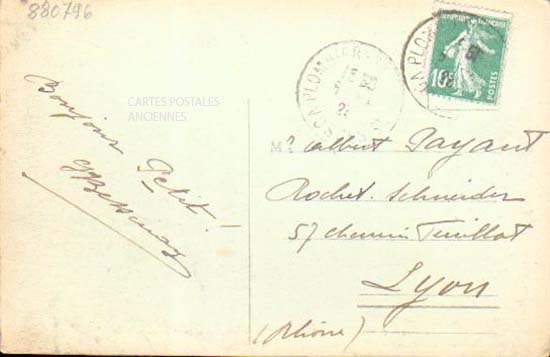 880796
CARTES POSTALES
ANCIENNES
Bonjour
Petit
PLOMBIERES
REPUBLIQUE FRANÇAISE
10c
POSTES
Mr Albert Payant
Rochet. Schneider
57 chemin Feuillat
Lyon
(Rhône)